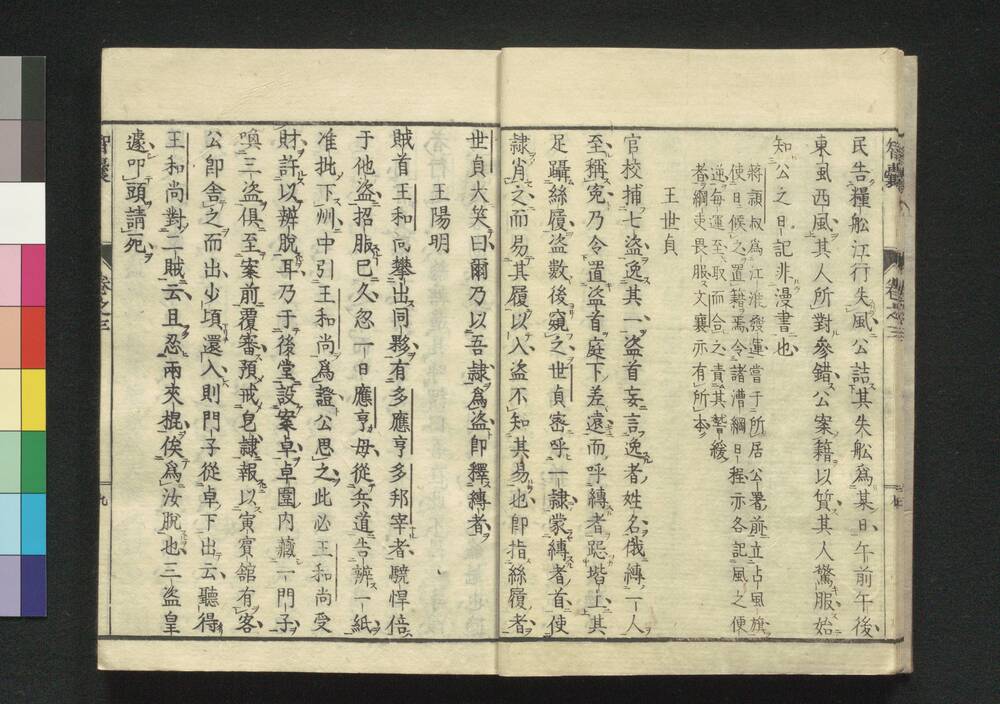 民告糧舩江行失風公詰其失舩為某日午前午後
東風西風其人所對參錯公案籍以質其人驚服始
知公之日記非漫書也
蔣頴叔為江淮發運嘗于所居公署前立占風旗
使日候之置籍焉令諸漕綱日程亦各記風之便
逆每運至取而合之責其𦂳緩
者綱吏畏服文襄亦有所本
王世貞
官校捕七盜逸其一盜首妄言逸者姓名俄縛一人
至稱寃乃令置盜首庭下差遠而呼縛者跽堦上其
足躡絲履盜數後窺之世貞密呼一隷蒙縛者首使
隷肖之而易其履以入盜不知其易也卽指絲履者
世貞大笑曰爾乃以吾隷為盜卽釋縛者
王陽明
賊首王和尚攀出同夥有多應亨多邦宰者驍悍倍
于他盜招服已久忽一日應亨母從兵道告辨一紙
准批下州中引王和尚為證公思之此必王和尚受
財許以辨脫耳乃于後堂設案卓卓圍内藏一門子
喚三盜俱至案前覆審預戒皂隷報以寅賓舘有客
公卽舎之而出少頃還入則門子從卓下出云聽得
王和尚對二賊云且忍兩夾棍俟為汝脫也三盜皇
遽叩頭請死
智囊
卷之三
九